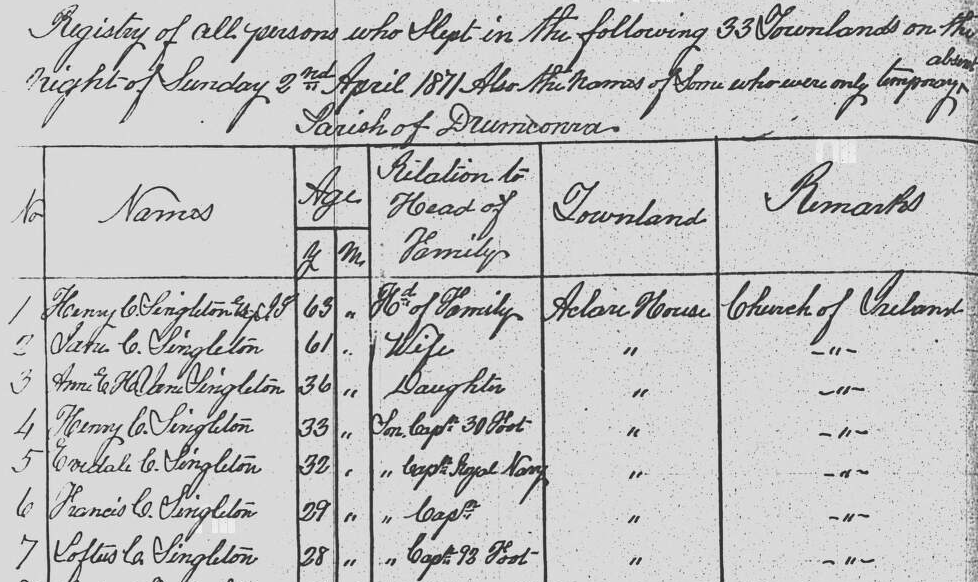 Registry of all persons who Slept in the following 33 Townlands on the
night of Sunday 2nd April 1871 Also the Names of Some who were only temporary absent
Parish of Drumconra
No Names Age Relation to Head of Family Townland Remarks
Y M
1 Henry C. Singleton Esq. J.P. 63 " Hd of Family Aclare House Church of Ireland
2 C. Singleton 61 " Wife " -"-
3 Singleton 36 " Daughter " -"-
4 Henry C. Singleton 33 " Son. Capt. 30 Foot " -"-
5 C. Singleton 32 " " Capt. Royal Navy " -"-
6 Francis C. Singleton 29 " " Capt. " -"-
7 Loftus C. Singleton 28 " " Capt. 92 Foot " -"-